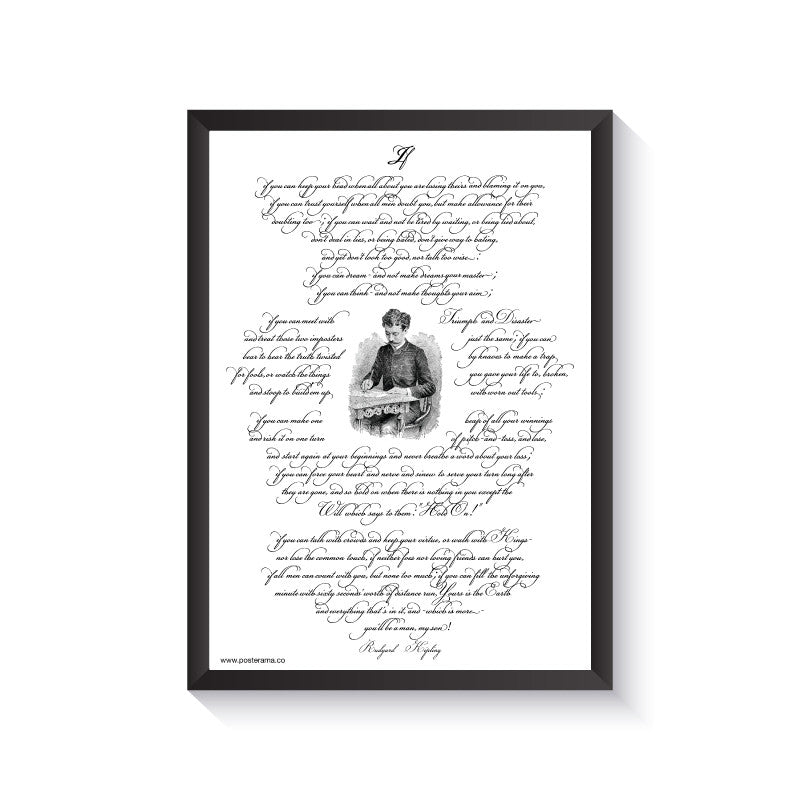 If
if you can keep your head when all about you are losing theirs and blaming it on you,
if you can trust yourself when all men doubt you, but make allowance for their
doubting too ; if you can wait and not be tired by waiting, or being lied about,
don't deal in lies, or being hated, don't give way to hating,
and yet don't look too good, nor talk too wise :
if you can dream - and not make dreams your master ;
if you can think - and not make thoughts your aim ;
if you can meet with Triumph and Disaster
and treat those two imposters just the same ; if you can
bear to hear the truth twisted by knaves to make a trap
for fools, or watch the things you gave your life to, broken,
and stoop to build'em up, with worn out tools ;
if you can make one heap of all your winnings
and risk it on one turn of pitch-and-toss, and lose,
and start again at your beginnings and never breathe a word about your loss ;
if you can force your heart and nerve and sinew to serve your turn long after
they are gone, and so hold on when there is nothing in you except the
Will which says to them: "Hold On!"
if you can talk with crowds and keep your virtue, or walk with Kings -
nor lose the common touch, if neither foes nor loving friends can hurt you,
if all men can count with you, but none too much ; if you can fill the unforgiving
minute with sixty seconds' worth of distance run, Yours is the Earth
and everything that's in it, and - which is more -
you'll be a man, my son!
Rudyard Kipling
www.posterama.co